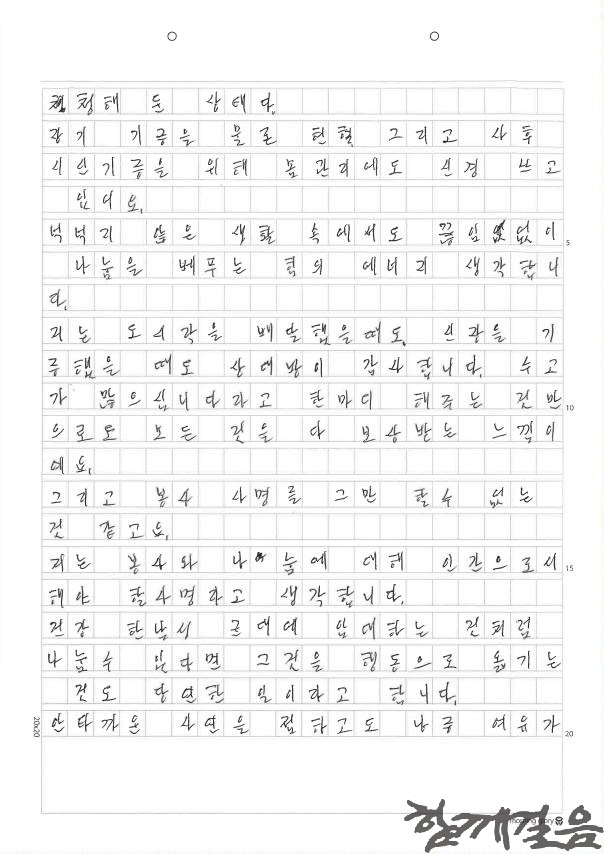 신청해 둔 상태다.
장기 기증을 물론 헌혈 그리고 사후
시신기증을 위해 몸관리에도 신경 쓰고
있어요.
넉넉치 않은 생활 속에서도 끊임없이
나눔을 베푸는 힘의 에너지 생각합니
다.
저는 도시락을 배달했을때도, 신장을 기
증했을 때도 상대방이 감사합니다. 수고
가 많으십니다라고 한마디 해주는 것만
으로도 모든 것을 다 보상받는 느낌이
에요.
그리고 봉사 사명를 그만 할수 없는
것 같고요.
저는 봉사와 나눔에 대해 인간으로서
해야 할사명라고 생각합니다.
건강 한남서 군대에 입대하는 것처럼
나눌수 있다면 그것을 행동으로 옮기는
것도 당연한 일이라고 합니다.
안타까운 사연을 접하고도 나중 여유가
20x20
5
10
15
20
morning glory
함께걸음